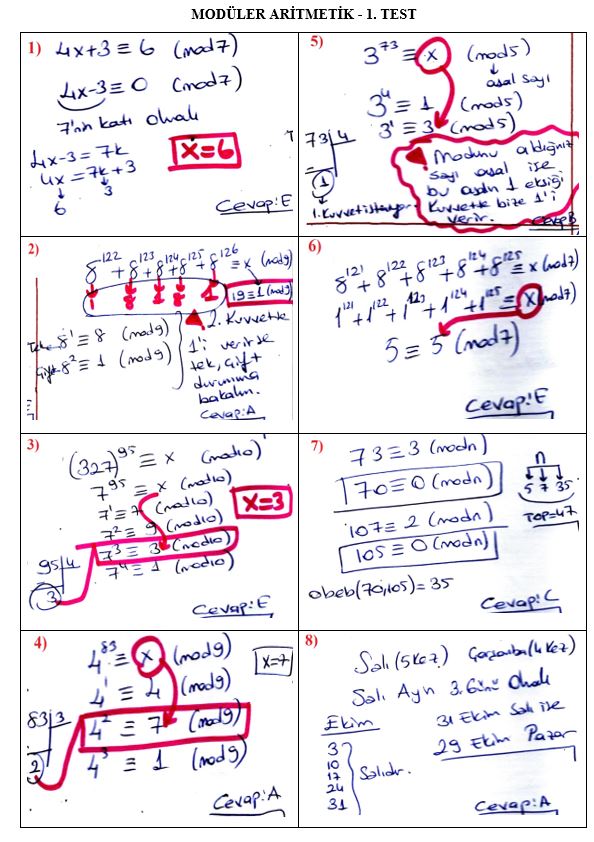 MODÜLER ARİTMETİK - 1. TEST
1)
4x+3 ≡ 6 (mod7)
4x-3 ≡ 0 (mod7)
7'nin katı olmalı
4x-3 = 7k
4x = 7k+3
↓ ↓
6 3
X=6
Cevap:E
5)
3^73 ≡ x (mod5)
↓
asal sayı
3^4 ≡ 1 (mod5)
3^1 ≡ 3 (mod5)
73 | 4
1
1. Kuvveti isteniyor.
Modunu aldığınız
sayı asal ise
bu asalın 1 eksiği
Kuvvette bize 1'i
verir.
Cevap:B
2)
8^122 + 8^123 + 8^124 + 8^125 + 8^126 ≡ x (mod9)
1 8 1 8 1
19 ≡ 1 (mod9)
Tek 8^1 ≡ 8 (mod9)
Çift 8^2 ≡ 1 (mod9)
2. Kuvvette
1'i verirse
tek, çift
durumuna
bakalım.
Cevap:A
6)
8^121 + 8^122 + 8^123 + 8^124 + 8^125 ≡ x (mod7)
1^121 + 1^122 + 1^123 + 1^124 + 1^125 ≡ x (mod7)
5 ≡ 5 (mod7)
Cevap:E
3)
(327)^95 ≡ x (mod10)
7^95 ≡ x (mod10)
7^1 ≡ 7 (mod10)
7^2 ≡ 9 (mod10)
7^3 ≡ 3 (mod10)
7^4 ≡ 1 (mod10)
95 | 4
3
X=3
Cevap:E
7)
73 ≡ 3 (modn)
70 ≡ 0 (modn)
107 ≡ 2 (modn)
105 ≡ 0 (modn)
obeb(70,105) = 35
n
5 7 35
TOP=47
Cevap:C
4)
4^83 ≡ x (mod9)
4^1 ≡ 4 (mod9)
4^2 ≡ 7 (mod9)
4^3 ≡ 1 (mod9)
83 | 3
2
X=7
Cevap:A
8)
Salı (5 Kez) Çarşamba (4 Kez)
Salı Ayın 3. Günü Olmalı
Ekim
3
10
17
24
31
Salıdır.
31 Ekim Salı ise
29 Ekim Pazar
Cevap:A